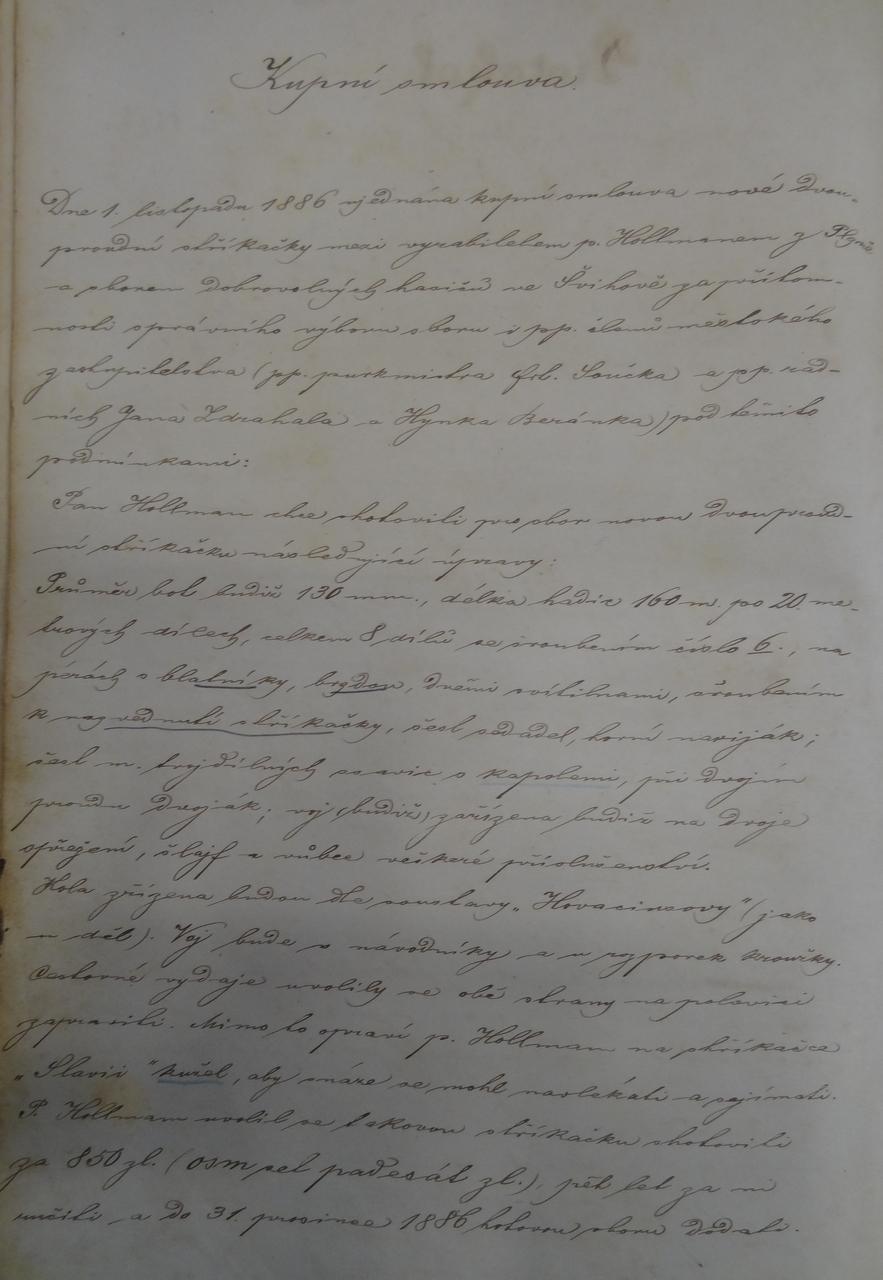 Kupní smlouva.
Dne 1. listopadu 1886 ujednána kupní smlouva nové dvou-
proudní stříkačky mezi vyrabitelem p. Hollmanem z Plzně
a sborem dobrovolných hasičů ve Švihově za přítom-
nosti správního výboru sboru i pp. členů městského
zastupitelstva (pp. purkmistra Součka a pp. rad-
ních Jana Zdrahala a Hynka Beránka) pod těmito
podmínkami:
Pan Hollman chce shotoviti pro sbor novou dvouproud-
ní stříkačku následující úpravy:
Průměr bot budiž 130 mm., délka hadic 160 m. po 20. me-
trových dílech, celkem 8 dílů se šroubením číslo 6., na
pérách s blatníky, brzdou, dvěmi svítilnami, šroubením
k nazvednutí stříkačky, šest sedadel, horní naviják;
šest m. trojdílných ssavic s kapolemi, při dvojím
proudu dvoják; voj (budiž) zařízena budiž na dvoje
spřežení, šlajf a vůbec veškeré příslušenství.
Kola zřízena budou dle soustavy „Hovacincovy" (jako
u děl). Voj bude s návodníky a u rozporek kroužky.
Cestovné výdaje uvolily se obě strany na polovici
zapraviti. Mimo to opraví p. Hollman na stříkačce
„Slavii" kužel, aby snáze se mohl navlékati a sejímati.
P. Hollman uvolil se takovou stříkačku shotoviti
za 850 zl. (osm set padesát zl.), pět let za ni
ručiti a do 31. prosince 1886 hotovou sboru dodati.